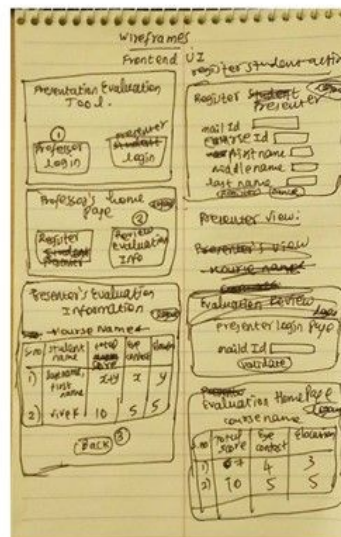 Wireframes
Frontend UI
Presentation Evaluation
Tool.
①
Professor
login
presenter
student
login
Professor's home
page
Register
student
②
Review
Evaluation
Info
Presenter's Evaluation
Information
course name
S.no student name total score Eye contact
1) first name x+y x y
2) vivek 10 5 5
Back ③
register student-action
Register student
Presenter
mail Id
course Id
first name
middle name
last name
Presenter view:
Presenter's view
course name
Evaluation Review
presenter login page
maild Id
validate
Evaluation Home Page
course name
S.no Total score Eye contact Elocation
1) 7 4 3
2) 10 5 5